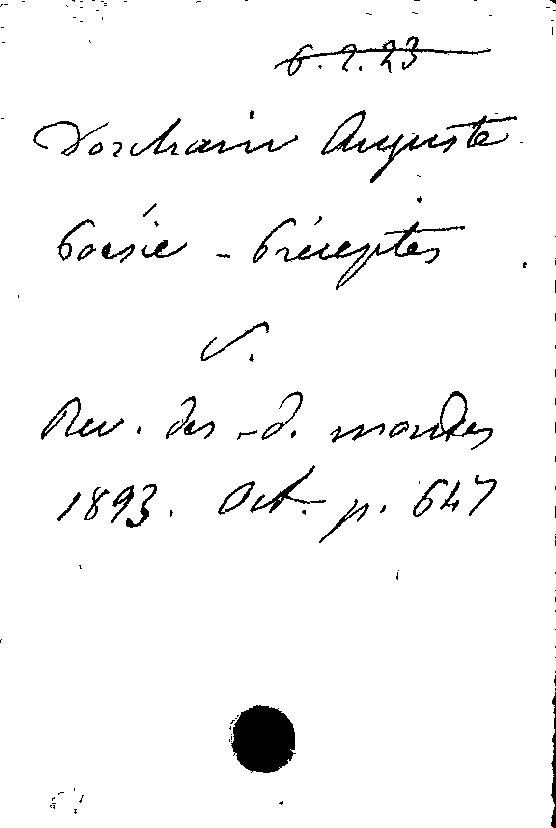 6.2.23
Dorchain Auguste
Poésie - Préceptes
V.
Rev. des -d. mondes
1893. Oct. p. 647